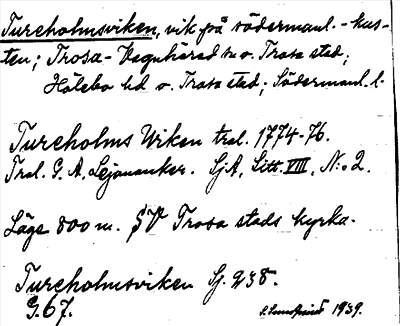 Tureholmsviken, vik på södermanl.-kus-
ten; Trosa-Vagnhärad sn o. Trosa stad;
Hölebo hd o. Trosa stad; Södermanl. l.
Tureholms Wiken tral. 1774-76.
Tral. G. A. Lejonanker. SjA, Litt. VIII, N:o 2.
Läge 800 m. SV Trosa stads kyrka.
Tureholmsviken Sj. 938.
G. 67.
1939.